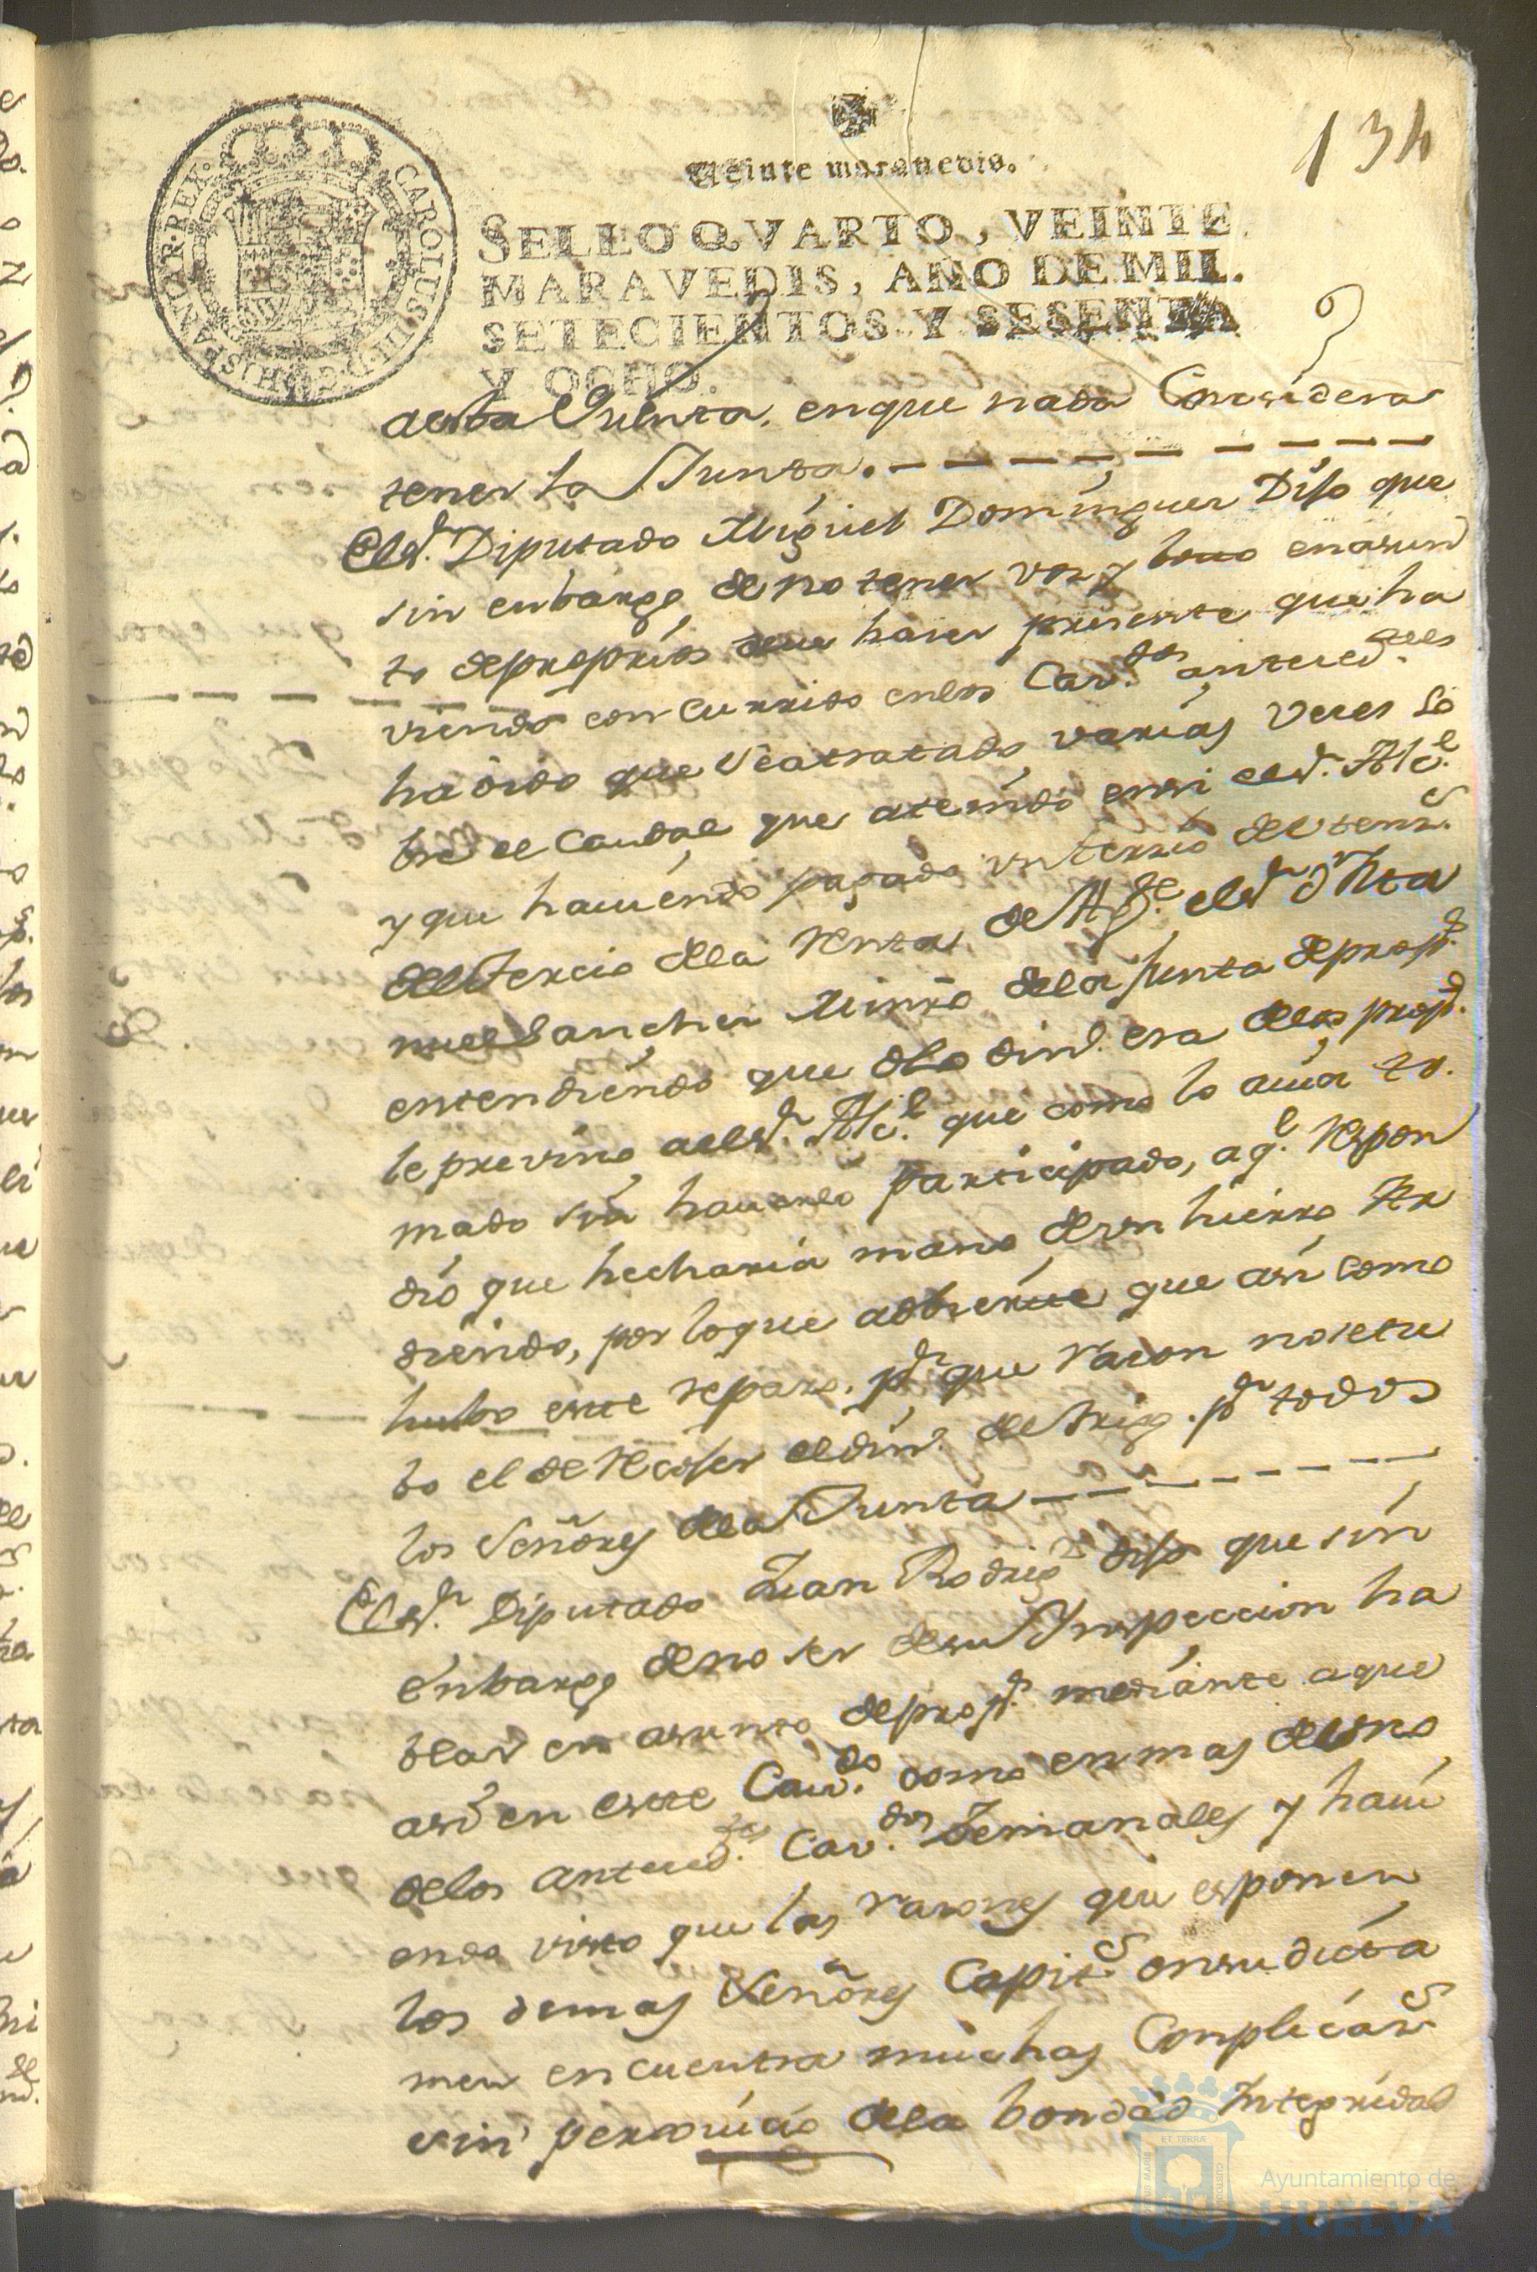 134
Veinte maravedis.
SELLO QVARTO, VEINTE
MARAVEDIS, AÑO DE MIL.
SETECIENTOS Y SESENTA
Y OCHO.
CAROLUS III D G HISPANIAR REX
aesta Quenta, enque nada Considera
tener la Junta.
El Sr. Diputado Miguel Dominguez Dijo que
sin enbargo de no tener voz y boto enasun
to deproprios deve hacer presente que ha
viendo concurrido enlos Cavdos anteced.tes
ha oido que seatratado varias veces so
bre el Caudal que atenido ensi el Sr. Alc.e
y que haviendo pagado untercio
del tercio dela renta de Ag.te el Sr. Dn
nuel Sanchez Minro dela Junta deprop.s
entendiendo que dho din.o era delos prop.s
le previno a el Sr. Alc.e que como lo avia to.
mado sin haverlo participado, aq.e Respon
dió que hecharia mano de un hierro Ar
diendo, por loque adbierte que asi como
hubo este reparo, pr que racon nosetu
bo el de Recojer eldin.o del trigo. pr todos
los Señores dela Junta
El Sr. Diputado Juan Rodrig.z dijo que sin
enbargo deno ser desu Inspeccion ha
blar en asunto deprop.s mediante aque
asi en este Cav.do como en mas deuno
delos anteced.tes Cav.dos Semanales y havi
endo visto que las racones que esponen
los demas Señores Capit.s ensu dicta
men encuentra muchas Conplicas.s
sin perxuicio dela bondad Integridad
Ayuntamiento de
HUELVA